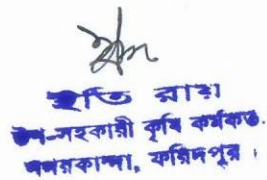 রায়
উপ-সহকারী কৃষি কর্মকর্তা
নগরকান্দা, ফরিদপুর।